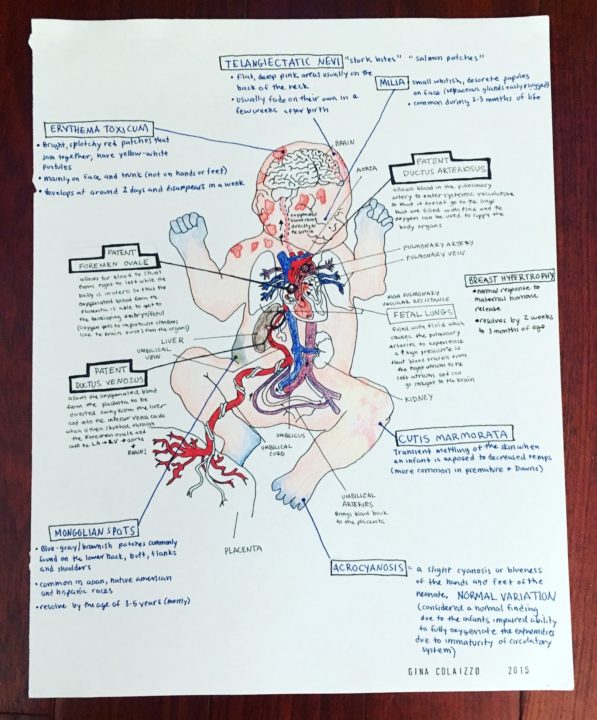 TELANGIECTATIC NEVI "stork bites" "salmon patches"
• Flat, deep pink areas usually on the
back of the neck
• Usually fade on their own in a
few weeks after birth
MILIA small whitish, descrete papules
on face (sebaceous glands early plugged)
• common during 2-3 months of life
ERYTHEMA TOXICUM
• Bright, splotchy red patches that
join together, have yellow-white
pustules
• mainly on face and trunk (not on hands or feet)
• develops at around 2 days and disappears in a week
BRAIN
AORTA
PATENT
DUCTUS ARTERIOSUS
allows blood in the pulmonary
artery to enter systemic vasculature
so that it doesnt go to the lungs
that are filled with fluid and the
oxygen can be used to supply the
body organs
oxygenated
blood going
directly to
the brain
PULMONARY ARTERY
PULMONARY VEIN
PATENT
FOREMEN OVALE
allows for blood to shunt
from right to left while the
baby is in utero so that the
oxygenated blood from the
placenta is able to get to
the developing embryo/fetus
(oxygen gets to important structures
like the brain first then the organs)
BREAST HYPERTROPHY
• normal response to
maternal hormone
release
• resolves by 2 weeks
to 3 months of age
HIGH PULMONARY
VASCULAR RESISTANCE
FETAL LUNGS
filled with fluid which
causes the pulmonary
arteries to experience
a ↑ high pressure so
that blood travels from
the right atrium to the
left atrium and can
go straight to the brain
LIVER
UMBILICAL
VEIN
PATENT
DUCTUS VENOSUS
allows the oxygenated blood
from the placenta to be
diverted away from the liver
and into the inferior vena cava
which is then shunted through
the foremen ovale and
into the LA → LV → aorta
↓
BRAIN!
KIDNEY
UMBILICUS
UMBILICAL
CORD
CUTIS MARMORATA
Transient mottling of the skin when
an infant is exposed to decreased temps
(more common in premature + Downs)
UMBILICAL
ARTERIES
Brings blood back
to the placenta
PLACENTA
MONGOLIAN SPOTS
• Blue-gray/brownish patches commonly
found on the lower back, butt, flanks
and shoulders
• common in asian, native american
and hispanic races
• resolve by the age of 3-5 years (mostly)
ACROCYANOSIS = a slight cyanosis or blueness
of the hands and feet of the
neonate, NORMAL VARIATION
(considered a normal finding
due to the infants impaired ability
to fully oxygenate the extremities
due to immaturity of circulatory
system)
GINA COLAIZZO 2015